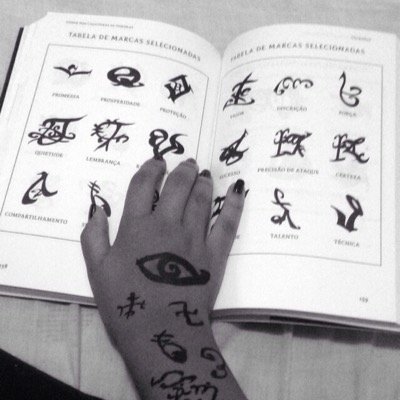 TABELA DE MARCAS SELECIONADAS
PROMESSA
PROSPERIDADE
PROTEÇÃO
QUIETUDE
LEMBRANÇA
COMPARTILHAMENTO
TABELA DE MARCAS SELECIONADAS
VIGOR
DISCRIÇÃO
FORÇA
SUCESSO
PRECISÃO DE ATAQUE
CERTEZA
TALENTO
TÉCNICA
159